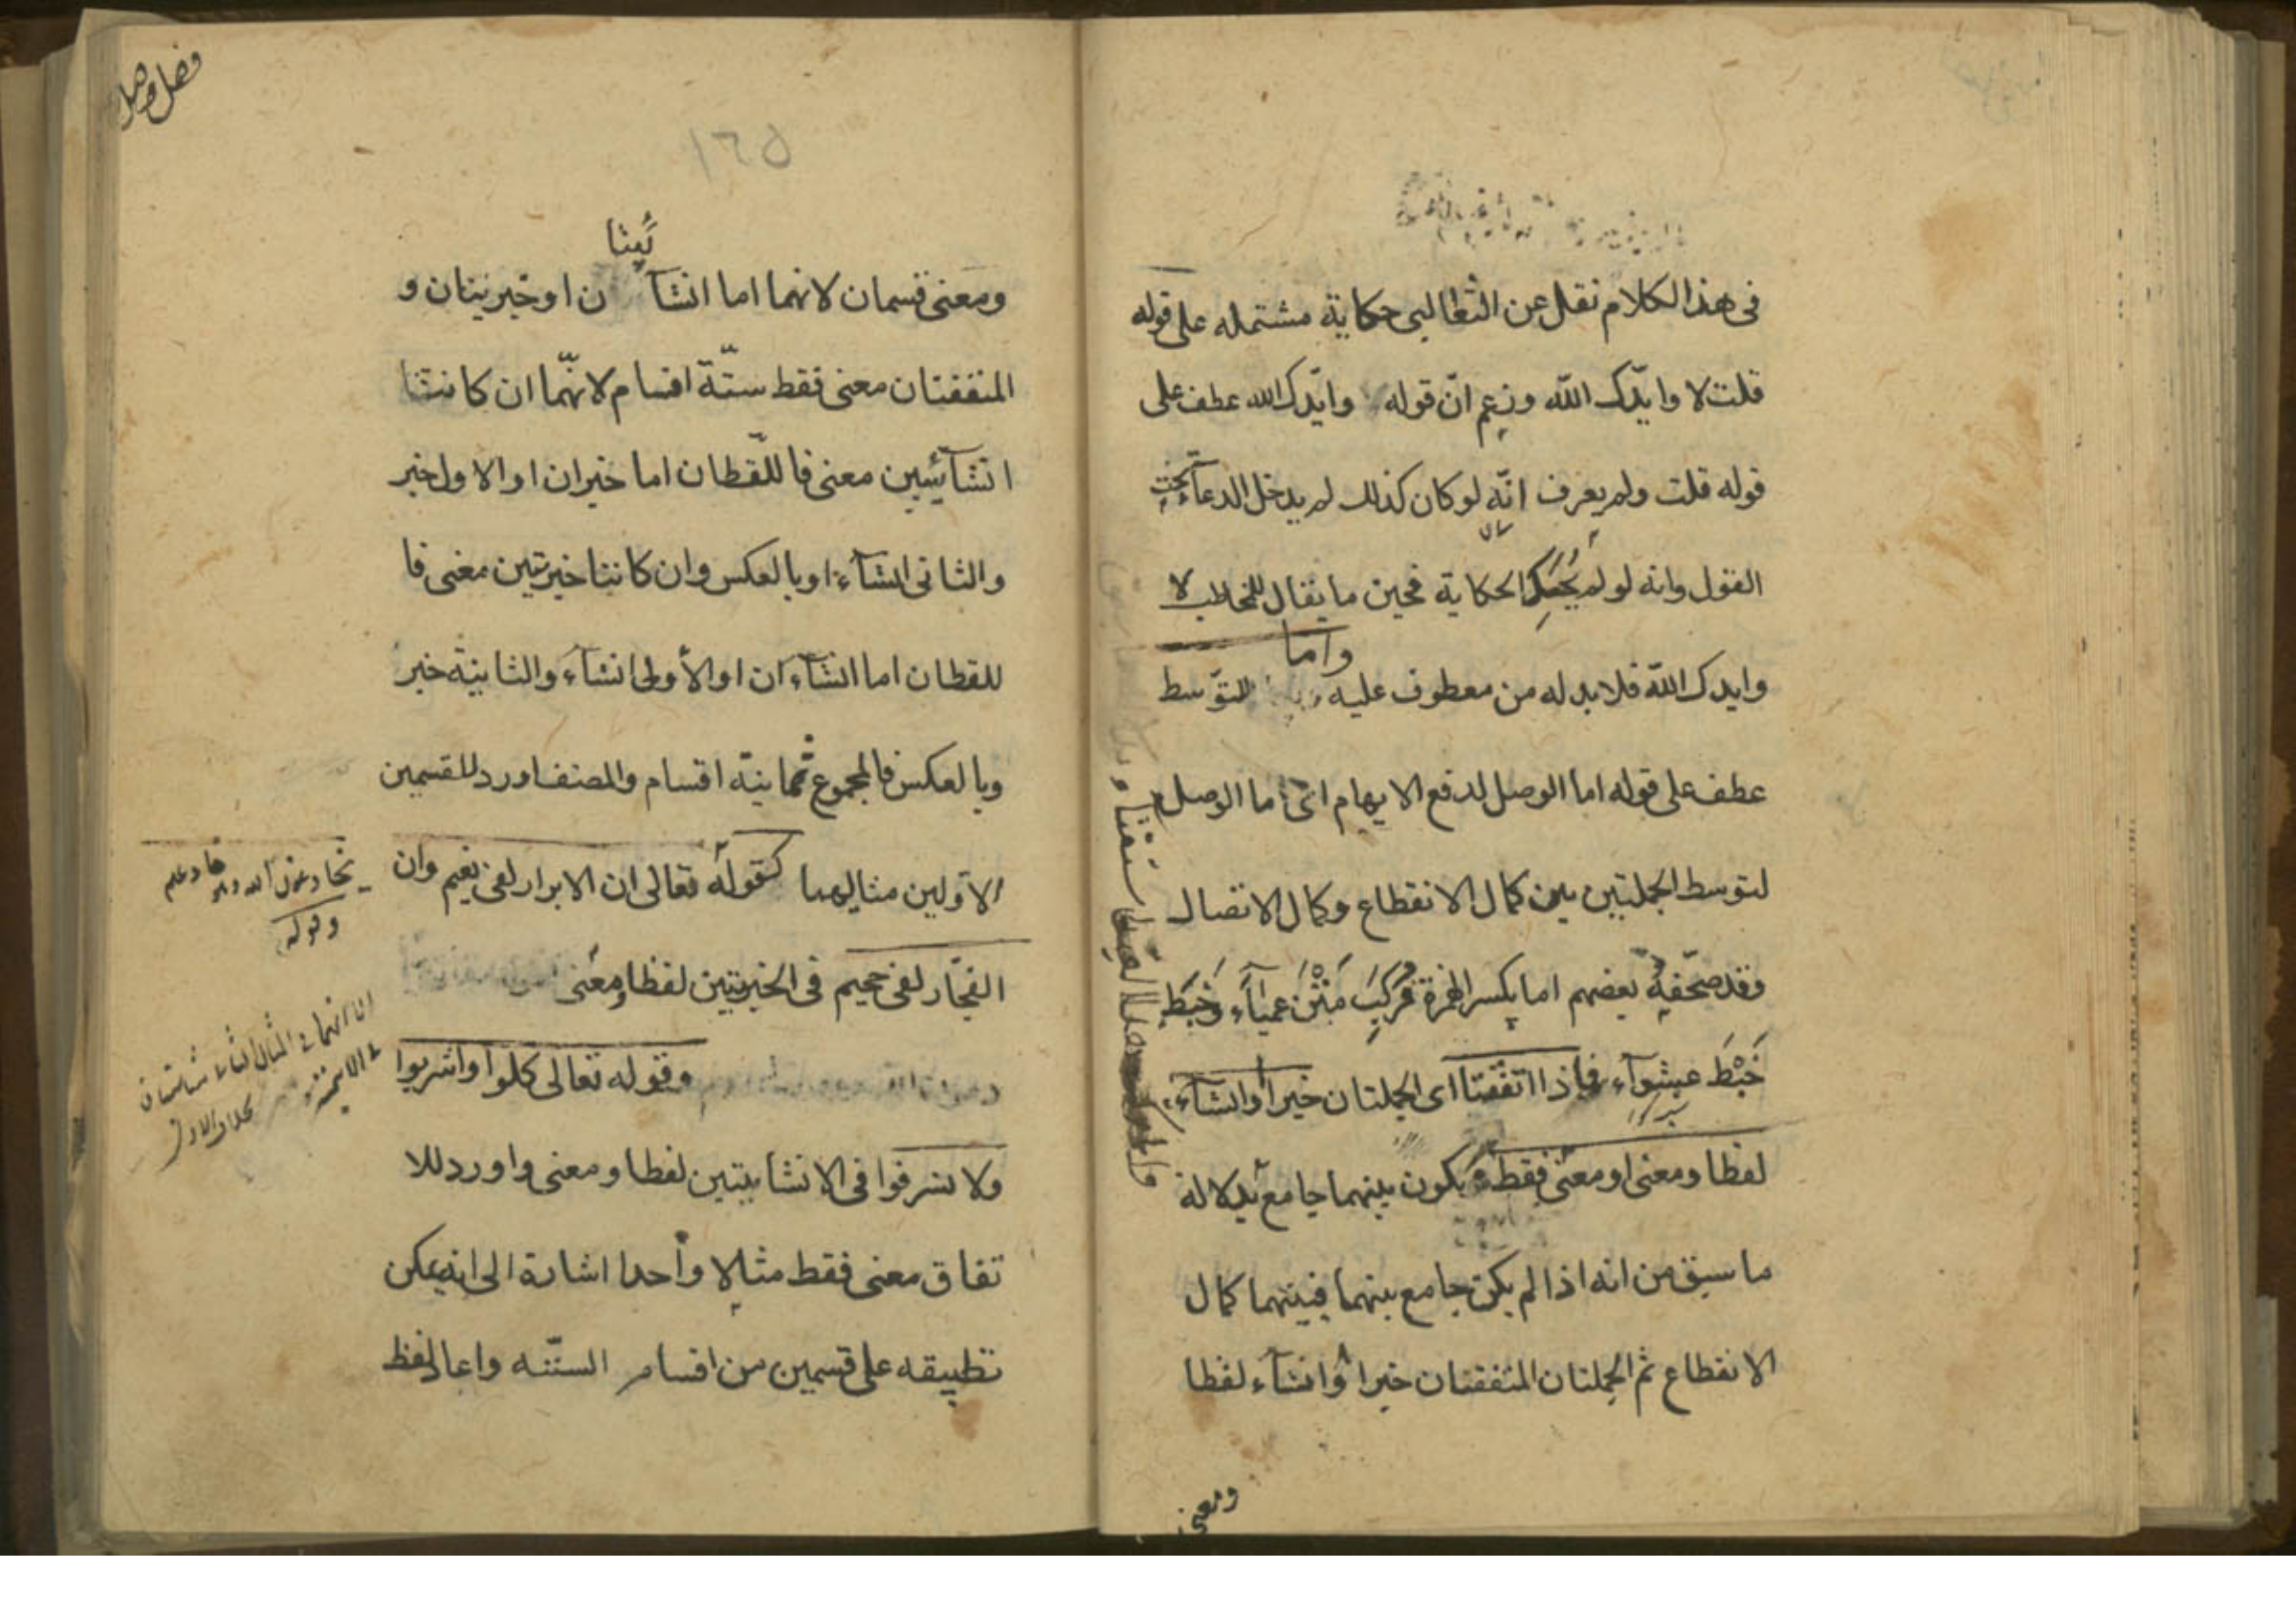 في هذا الكلام نقل عن الثعالبى حكاية مشتمله على قوله
قلت لا وايّدك اللّه وزعم انّ قوله وايّدك الله عطف على
قوله قلت ولم يعرف انّه لو كان كذلك لم يدخل الدعآء تحت
القول وانه لو لم يحك الحكاية فحين ما يقال للمخاطب لا
وايدك اللّه فلا بد له من معطوف عليه واما للتوّسط
عطف على قوله اما الوصل لدفع الايهام اى اما الوصل
لتوسط الجملتين بين كمال الانقطاع وكمال الاتصال
وقد صحّفه بعضهم اما بكسر الهمزة فركب متن عمياء وخبط
خبط عشوآء فاذا اتفقتا اى الجملتان خبرا او انشآء
لفظا ومعنى او معنى فقط ويكون بينهما جامع بدلالة
ما سبق من انه اذا لم يكن جامع بينهما فبينهما كمال
الانقطاع ثم الجملتان المتفقتان خبرا او انشآء لفظا
ومعنى
فصل وصل
١٦٥
ومعنى قسمان لانهما اما انشآئيتان او خبريتان و
المتفقتان معنى فقط ستّة اقسام لانّهما ان كانتا
انشآئيتين معنى فاللّفظان اما خبران او الاول خبر
والثانى انشآء او بالعكس وان كانتا خبريتين معنى فا
للفظان اما انشآءان او الأولى انشآء والثانية خبر
وبالعكس فالمجموع ثمانية اقسام والمصنف اورد للقسمين
الاوّلين مثاليهما كقوله تعالى ان الابرار لفى نعيم وان
الفجّار لفى جحيم فى الخبريتين لفظا ومعنى
وقوله تعالى كلوا واشربوا
ولا تسرفوا فى الانشائيتين لفظا ومعنى واورد للا
تفاق معنى فقط مثالا واحدا اشارة الى انه يمكن
تطبيقه على قسمين من اقسام الستّه واعاد لفظ
يخادعون الله وهو خادعهم
وقوله